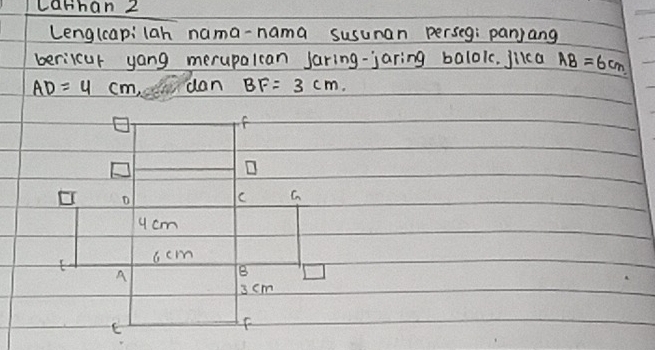 Latihan 2
Lengkapi lah nama-nama susunan persegi panjang
berikut yang merupakan jaring-jaring balok. jika AB = 6 cm,
AD = 4 cm, dan BF = 3 cm.
F
D C G
4 cm
6 cm
E
A B
3 cm
E F